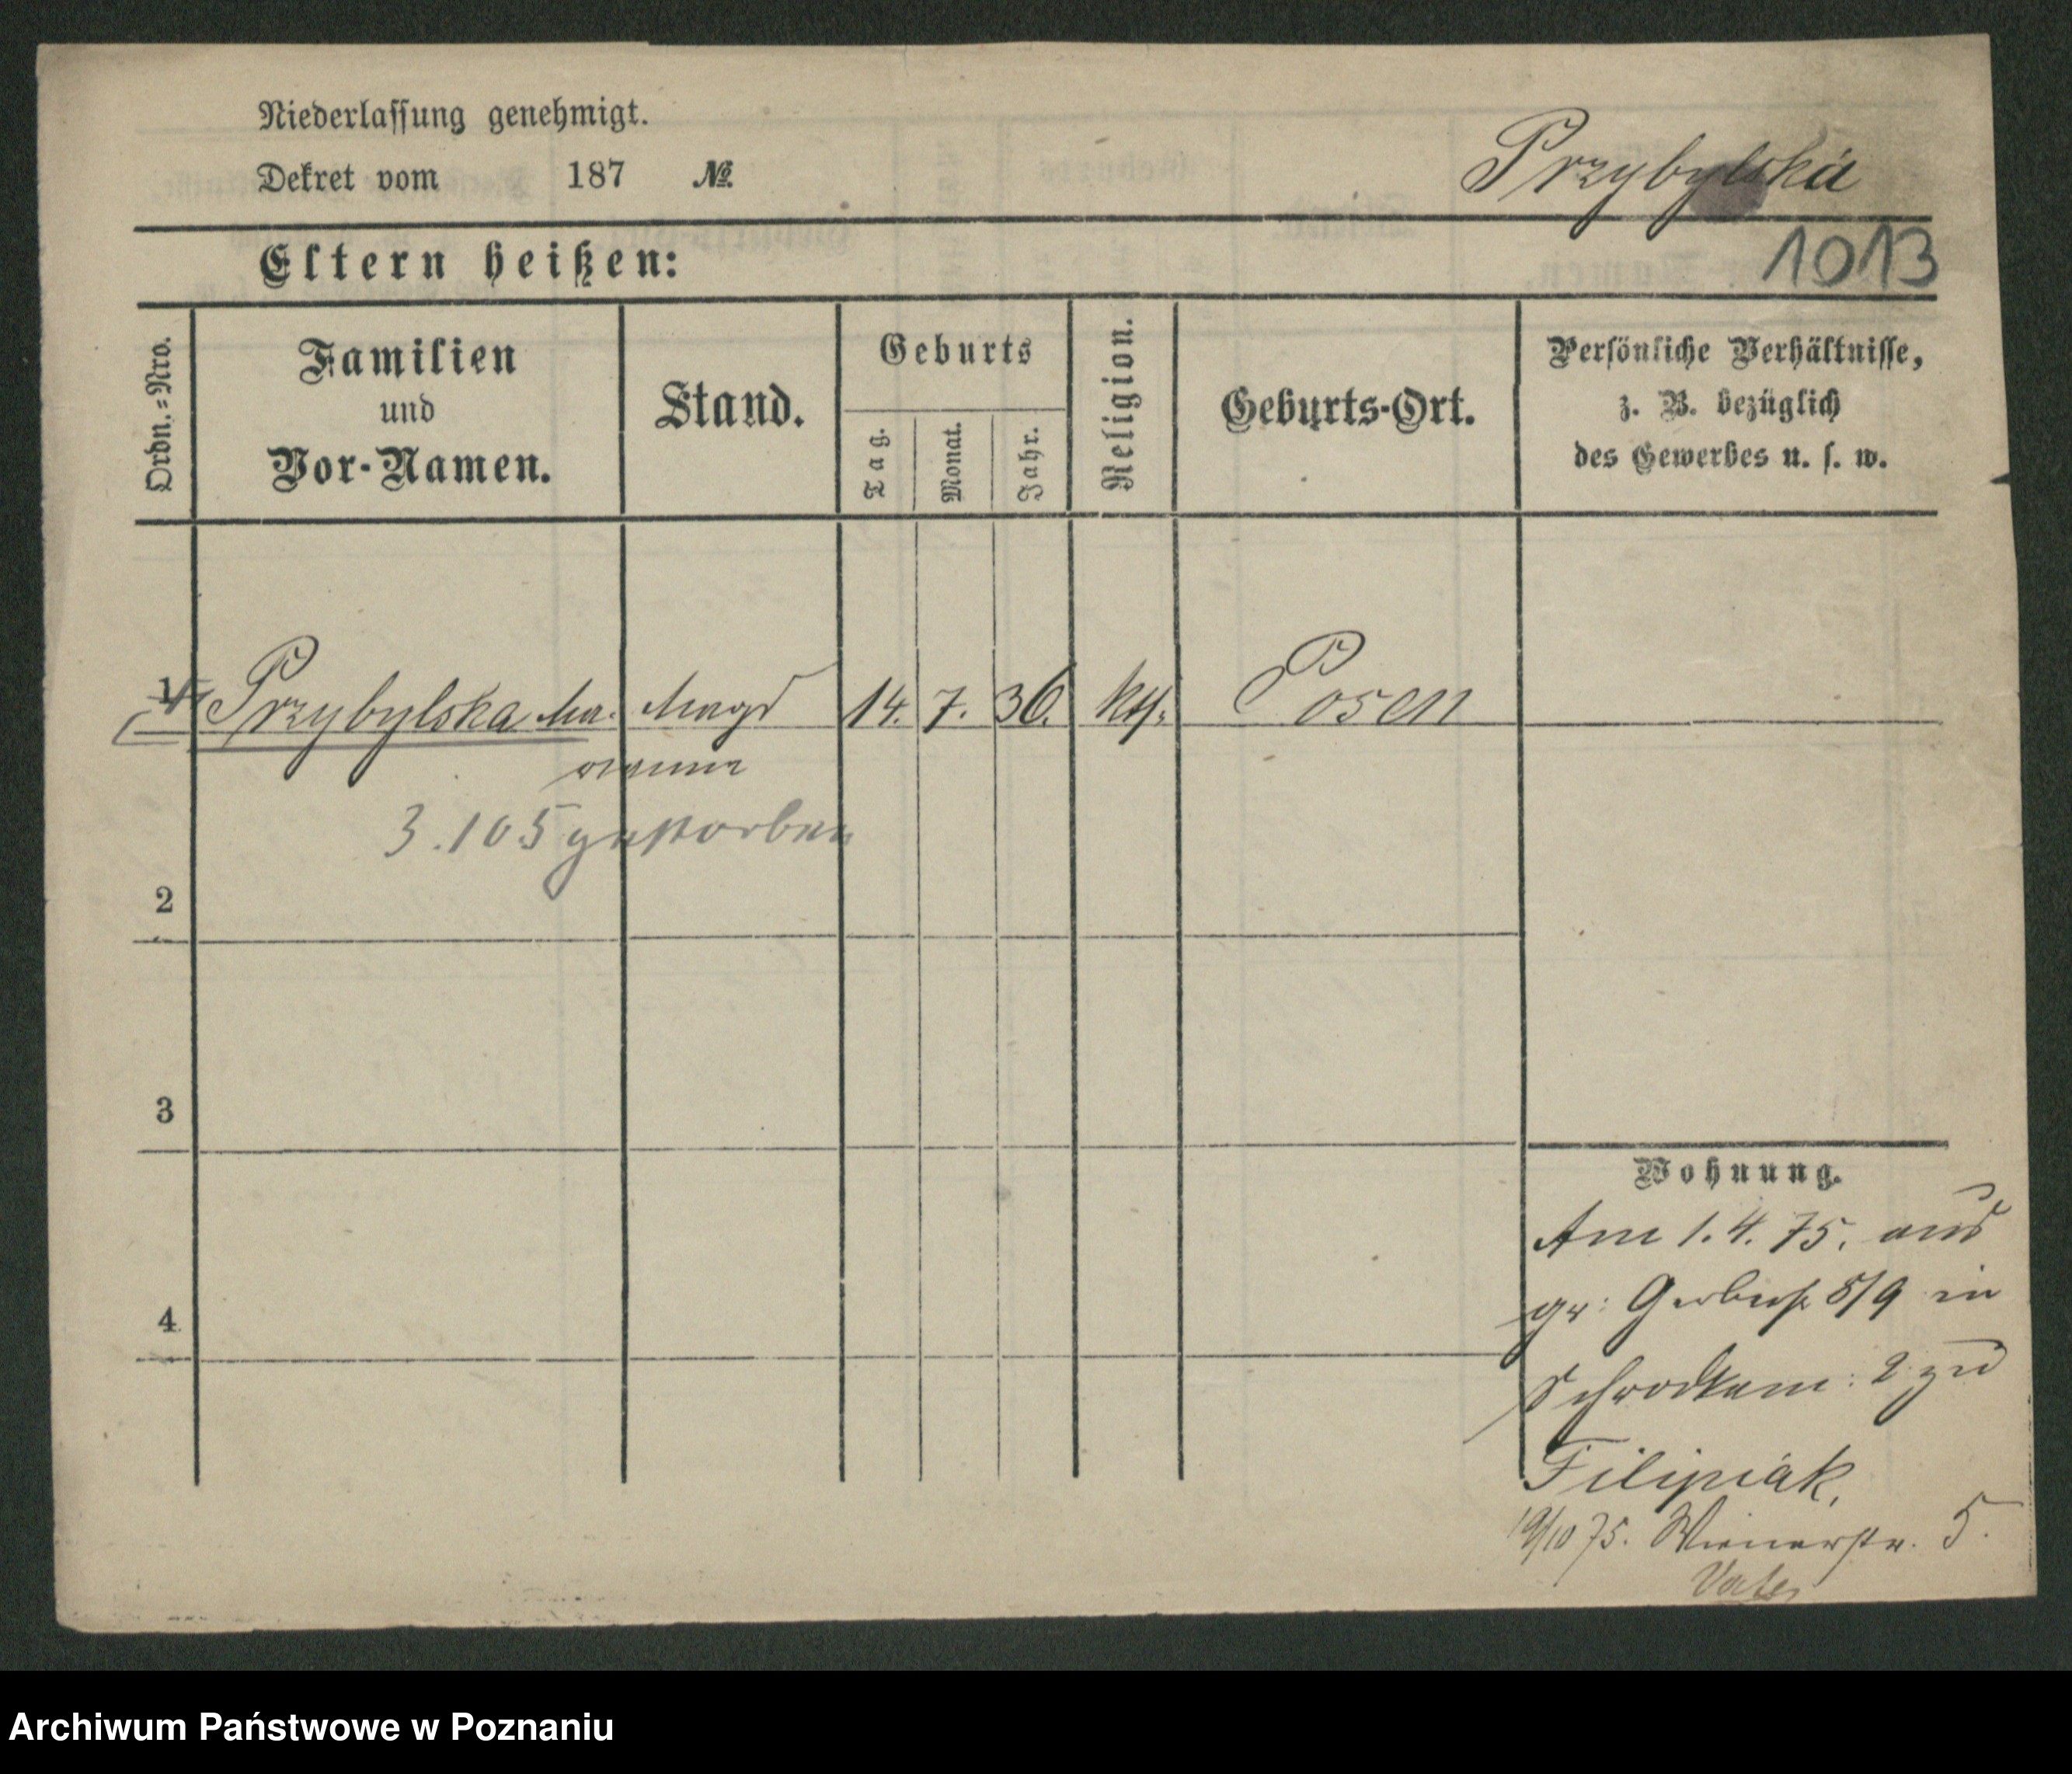 Niederlassung genehmigt.
Dekret vom 187 №
Przybylska
1013
Eltern heißen:
Ordn.=Nro.
Familien
und
Vor-Namen.
Stand.
Geburts
Tag.
Monat.
Jahr.
Religion.
Geburts-Ort.
Persönliche Verhältnisse,
z. B. bezüglich
des Gewerbes u. s. w.
1 Przybylska Ma. Magd 14. 7. 36. kth. Posen
rianna
3.105 gestorben
2
3
4
Wohnung.
Am 1. 4. 75. aus
gr: Gerberst 8/9 in
Schrodkam: 2 zu
Filipiak,
19/10 75. Wienerstr. 5.